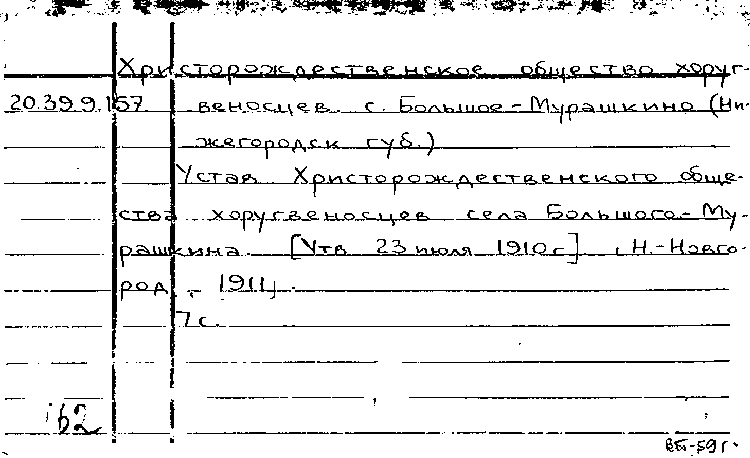 Христорождественское общество хоруг-
20.39.9.157 веносцев с. Большое-Мурашкино (Ни-
жегородск губ.)
Устав Христорождественского обще-
ства хоругвеносцев села Большого-Му-
рашкина [Утв 23 июля 1910 г], Н.-Новго-
род, 1911,
7 с.
162
ВБ-59 г.